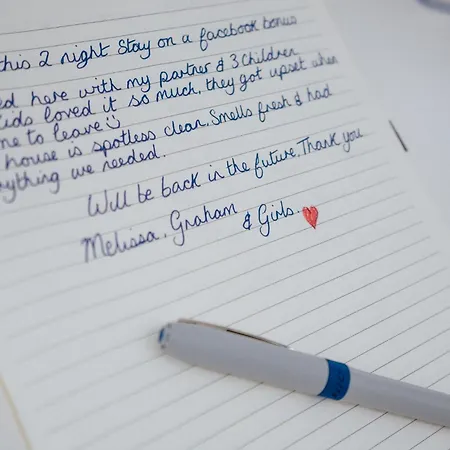 this 2 night stay on a facebook bonus
ed here with my partner & 3 children
ids loved it so much, they got upset when
me to leave
house is spotless clean. Smells fresh & had
rything we needed.
Will be back in the future. Thank you
Melissa, Graham & Girls.